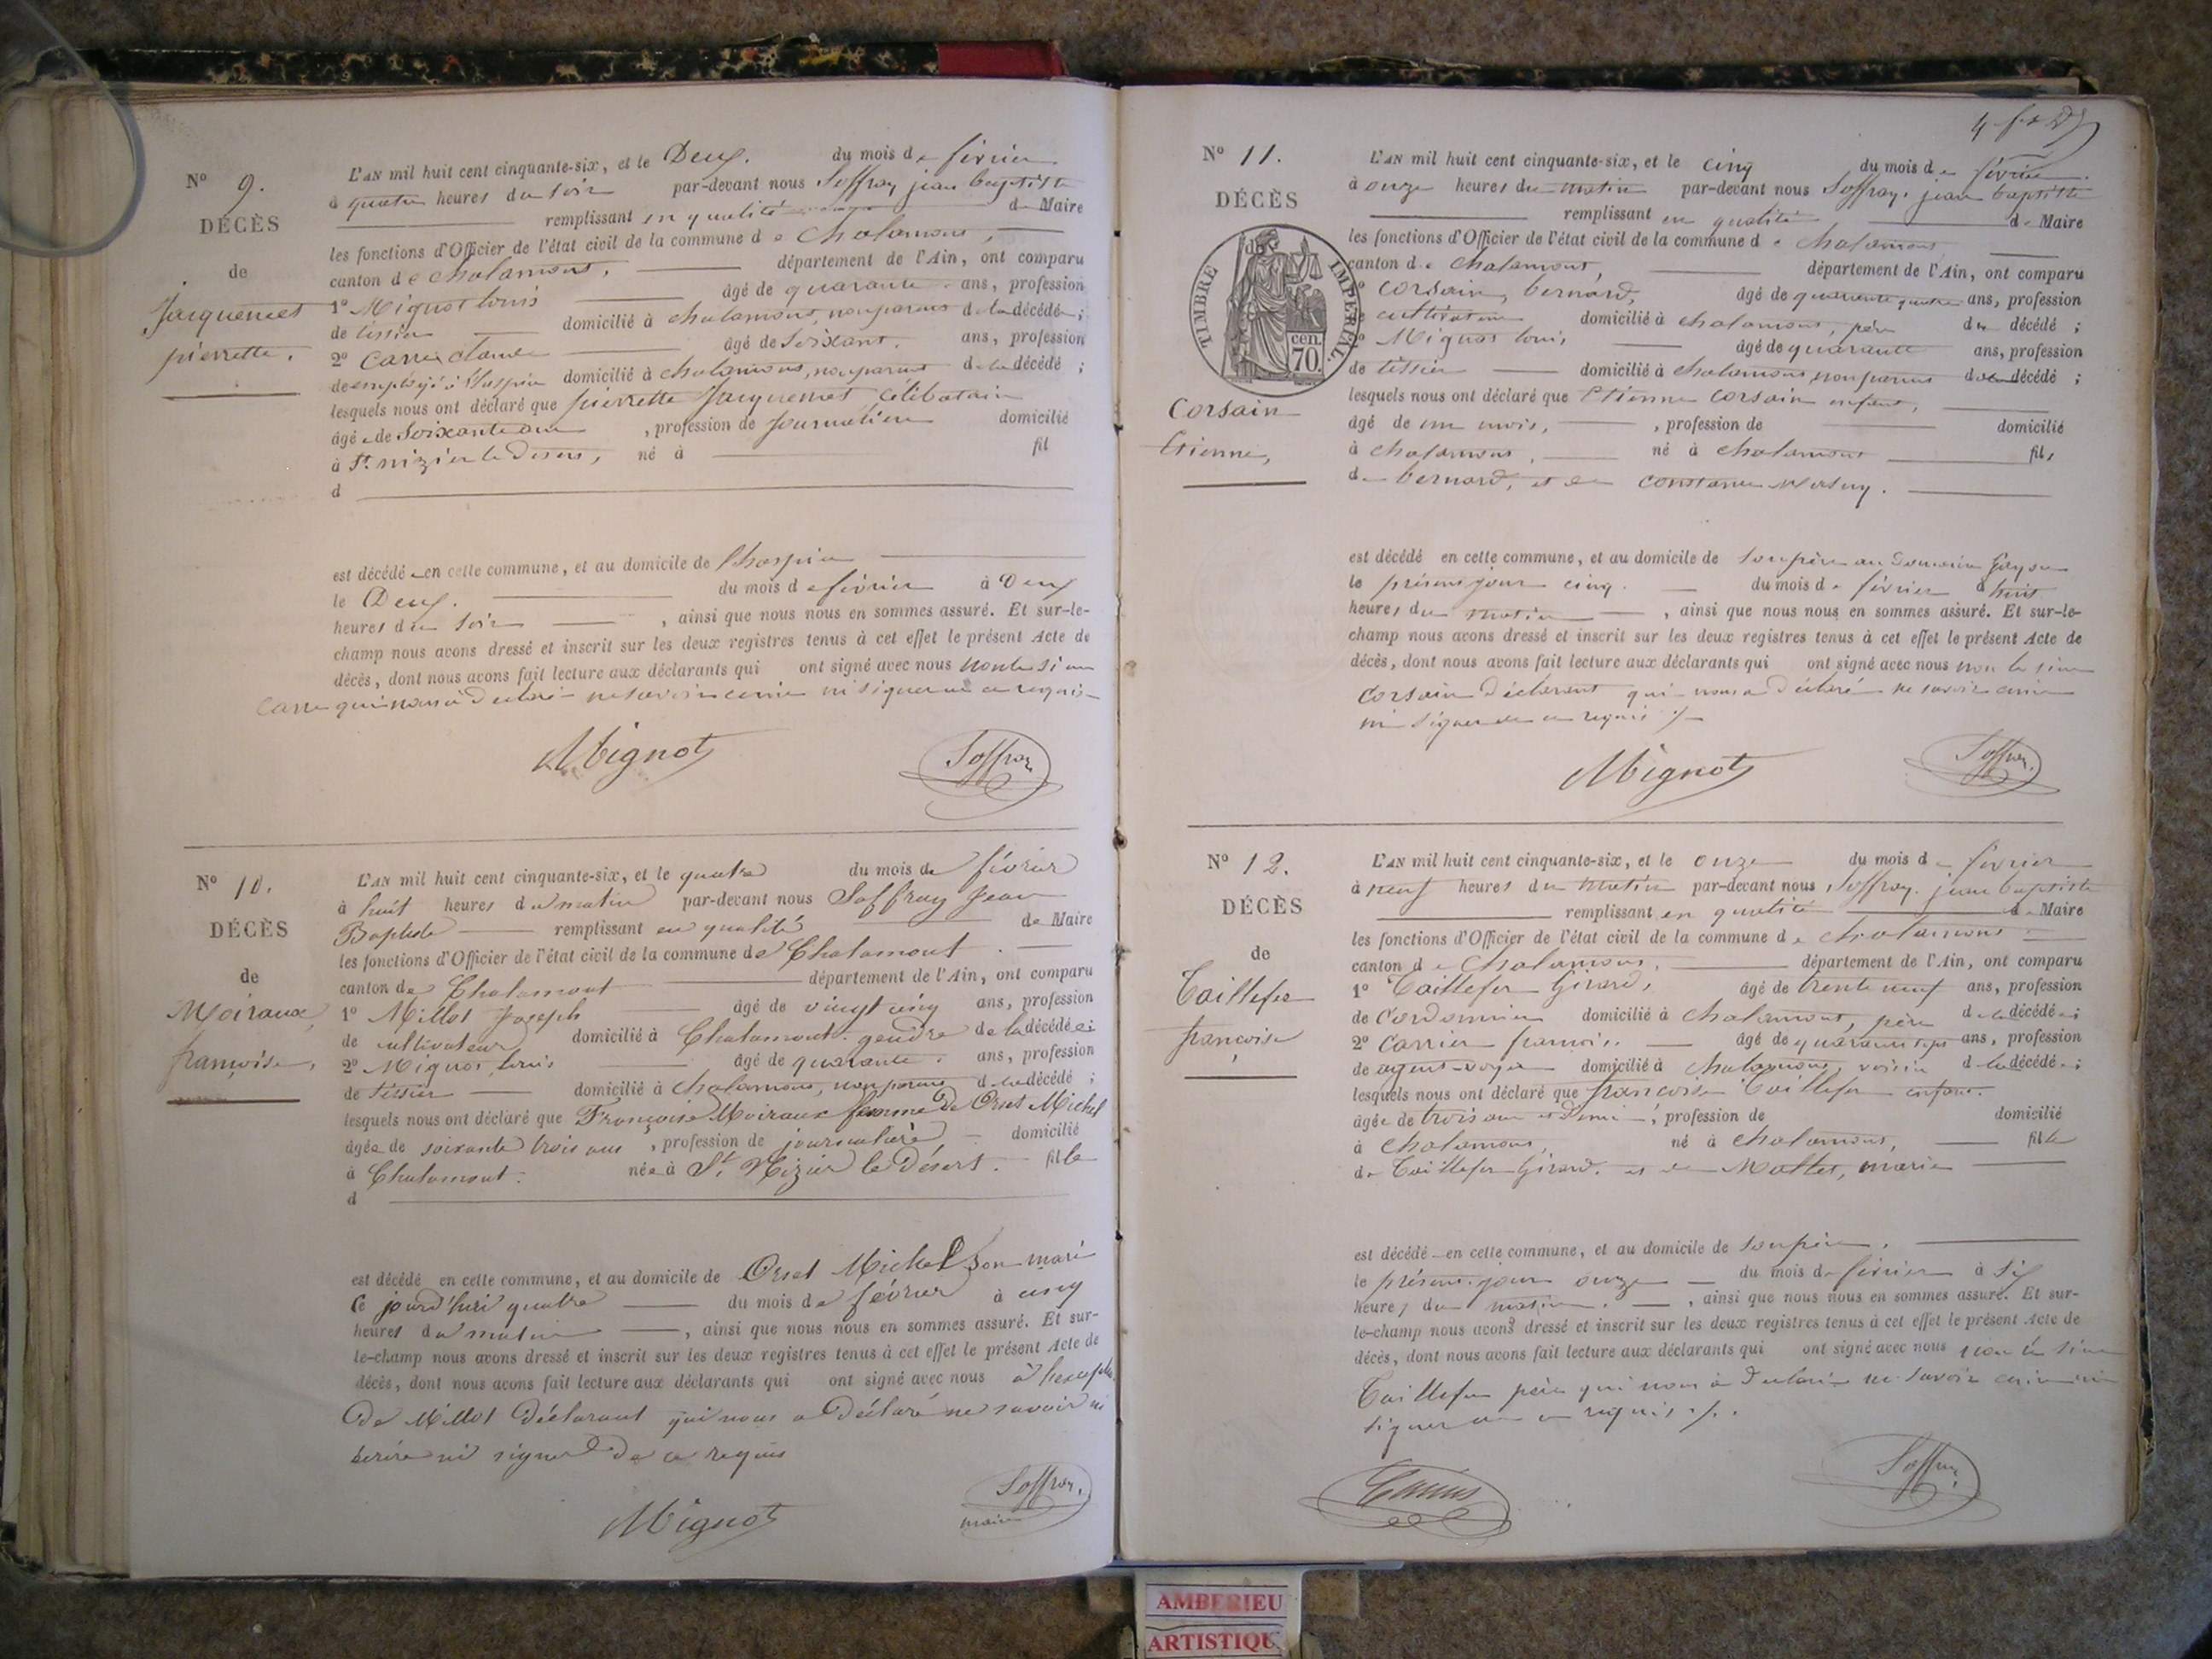 Nº 9.
DÉCÈS
de
Jacquemet
pierrette.
L'AN mil huit cent cinquante-six, et le Deux. du mois de février
à quatre heures du soir par-devant nous Soffray jean baptiste
remplissant en qualité de Maire
les fonctions d'Officier de l'état civil de la commune de Chalamont,
canton de chalamont, département de l'Ain, ont comparu
1º Mignot louis âgé de quarante ans, profession
de tissier domicilié à chalamont, non parent de la décédée;
2º Carré claude âgé de soixante. ans, profession
de employé à l'hospice domicilié à chalamont, non parent de la décédé;
lesquels nous ont déclaré que pierrette Jacquemet célibataire
âgée de soixante ans, profession de journalière domicilié
à St. nizier le Desert, né à fil
d
est décédé en cette commune, et au domicile de l'hospice
le Deux. du mois de février à Deux
heures du soir, ainsi que nous nous en sommes assuré. Et sur-le-
champ nous avons dressé et inscrit sur les deux registres tenus à cet effet le présent Acte de
décès, dont nous avons fait lecture aux déclarants qui ont signé avec nous
Carré qui nous a déclaré ne savoir écrire ni signer de ce requis
Mignot
Soffray
Nº 10.
DÉCÈS
de
Moiraux,
françoise,
L'AN mil huit cent cinquante-six, et le quatre du mois de février
à huit heures du matin par-devant nous Soffray Jean
Baptiste remplissant en qualité de Maire
les fonctions d'Officier de l'état civil de la commune de Chalamont.
canton de Chalamont département de l'Ain, ont comparu
1º Millot Joseph âgé de vingt cinq ans, profession
de cultivateur domicilié à Chalamont. gendre de la décédée;
2º Mignot, louis âgé de quarante. ans, profession
de tissier domicilié à chalamont, non parent de la décédé;
lesquels nous ont déclaré que Françoise Moiraux femme de Orset Michel
âgée de soixante trois ans, profession de journalière domicilié
à Chalamont. née à St. Nizier le Désert. fille
d
est décédé en cette commune, et au domicile de Orset Michel son mari
ce jourd'hui quatre du mois de février à cinq
heures du matin, ainsi que nous nous en sommes assuré. Et sur-
le-champ nous avons dressé et inscrit sur les deux registres tenus à cet effet le présent Acte de
décès, dont nous avons fait lecture aux déclarants qui ont signé avec nous à
De Millot Déclarant qui nous a Déclaré ne savoir ni
écrire ni signer De ce requis
Mignot
Soffray,
maire
Nº 11.
DÉCÈS
de
TIMBRE IMPÉRIAL.
70. cen.
Corsain
Etienne,
L'AN mil huit cent cinquante-six, et le cinq du mois de février.
à onze heures du matin par-devant nous Soffray. jean baptiste
remplissant en qualité de Maire
les fonctions d'Officier de l'état civil de la commune de chalamont
canton de Chalamont, département de l'Ain, ont comparu
1º Corsain, bernard, âgé de quarante quatre ans, profession
de cultivateur domicilié à chalamont, père du décédé;
2º Mignot louis âgé de quarante ans, profession
de tissier domicilié à chalamont non parent du décédé;
lesquels nous ont déclaré que Etienne Corsain enfant,
âgé de un mois, profession de domicilié
à chalamont, né à chalamont fils
de bernard, et de constance
est décédé en cette commune, et au domicile de son père au Domaine
le présent jour cinq. du mois de février à huit
heures du matin, ainsi que nous nous en sommes assuré. Et sur-le-
champ nous avons dressé et inscrit sur les deux registres tenus à cet effet le présent Acte de
décès, dont nous avons fait lecture aux déclarants qui ont signé avec nous
Corsain Déclarant qui nous a déclaré ne savoir écrire
ni signer de ce requis
Mignot
Soffray.
Nº 12.
DÉCÈS
de
Taillefer
françoise
L'AN mil huit cent cinquante-six, et le onze du mois de février
à neuf heures du matin par-devant nous, Soffray. jean baptiste
remplissant en qualité de Maire
les fonctions d'Officier de l'état civil de la commune de chalamont
canton de Chalamont, département de l'Ain, ont comparu
1º Taillefer Girard, âgé de trente neuf ans, profession
de Cordonnier domicilié à chalamont, père de la décédée;
2º Carrier françois. âgé de quarante sept ans, profession
de agent-voyer domicilié à chalamont, voisin de la décédée;
lesquels nous ont déclaré que françoise Taillefer enfant.
âgée de trois ans et Demi, profession de domicilié
à chalamont, né à chalamont, fille
de Taillefer Girard. et de Mollet, marie
est décédé en cette commune, et au domicile de son père,
le présent jour onze du mois de février à six
heures du matin., ainsi que nous nous en sommes assuré. Et sur-
le-champ nous avons dressé et inscrit sur les deux registres tenus à cet effet le présent Acte de
décès, dont nous avons fait lecture aux déclarants qui ont signé avec nous
Taillefer père qui nous a déclaré ne savoir écrire ni
signer de ce requis
Soffray
AMBERIEU
ARTISTIQUE